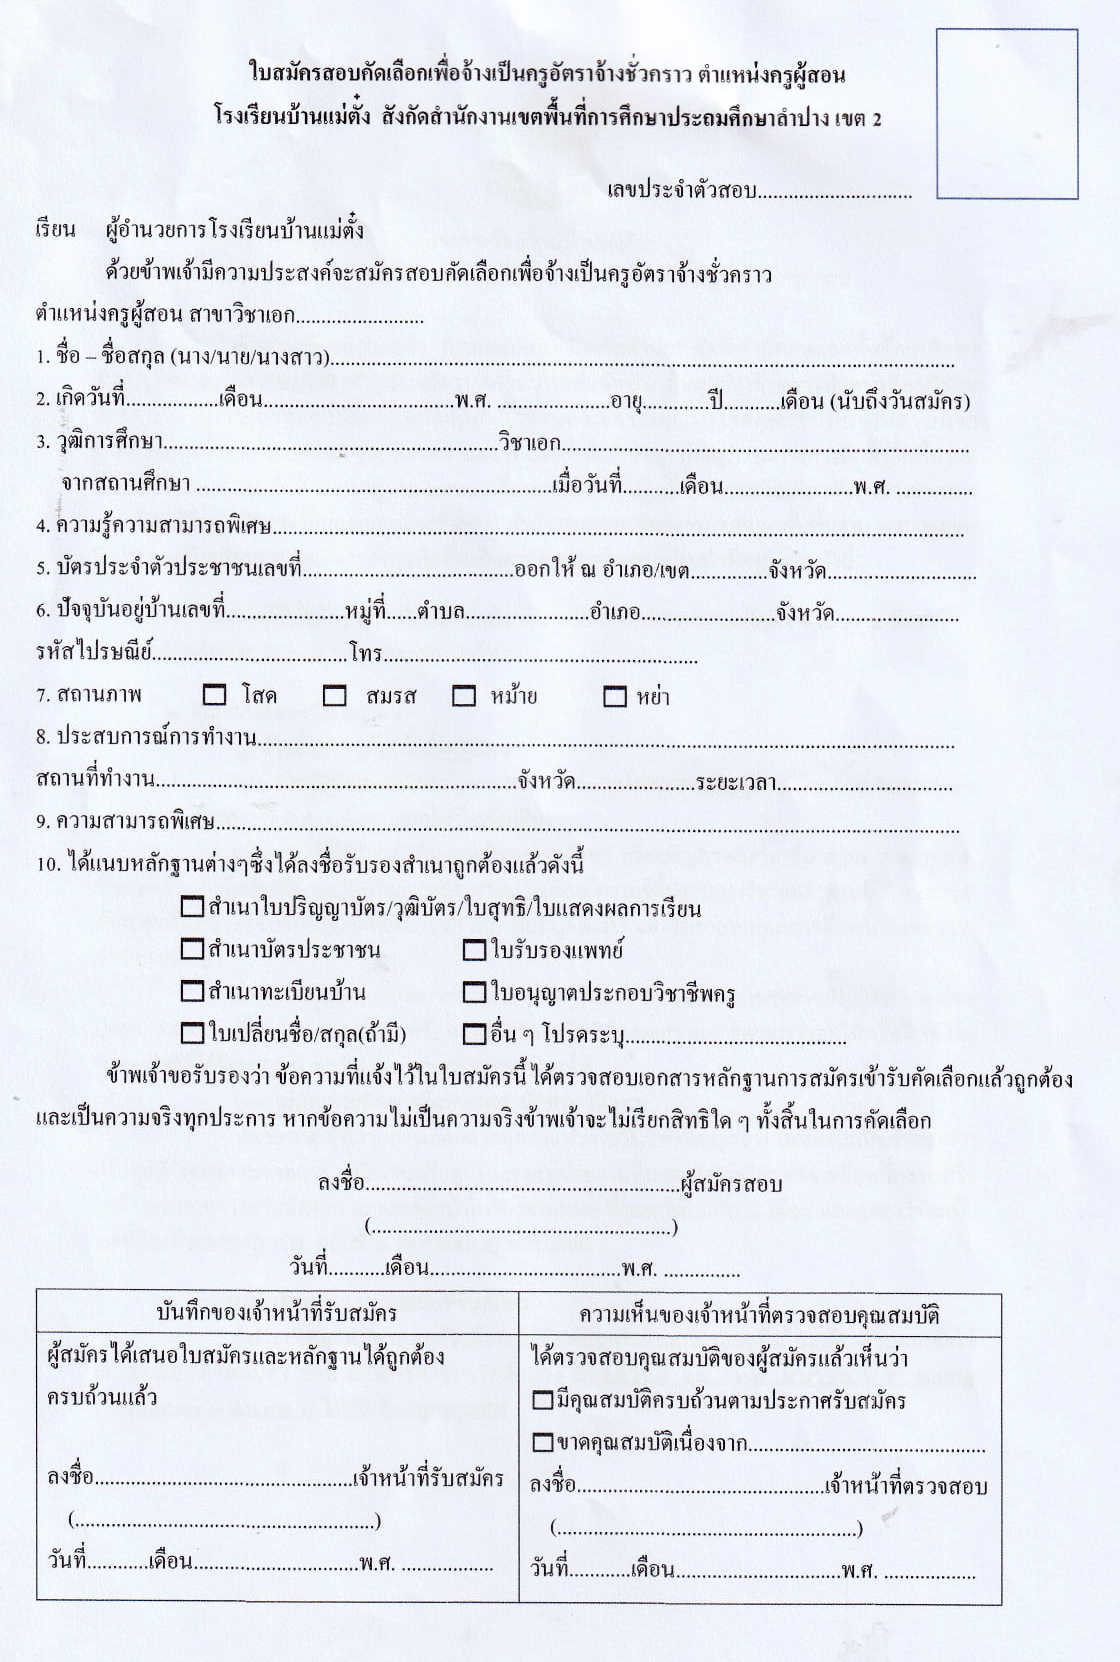 ใบสมัครสอบคัดเลือกเพื่อจ้างเป็นครูอัตราจ้างชั่วคราว ตำแหน่งครูผู้สอน
โรงเรียนบ้านแม่ตั๋ง สังกัดสำนักงานเขตพื้นที่การศึกษาประถมศึกษาลำปาง เขต 2
เลขประจำตัวสอบ..............................
เรียน ผู้อำนวยการโรงเรียนบ้านแม่ตั๋ง
ด้วยข้าพเจ้ามีความประสงค์จะสมัครสอบคัดเลือกเพื่อจ้างเป็นครูอัตราจ้างชั่วคราว
ตำแหน่งครูผู้สอน สาขาวิชาเอก.........................
1. ชื่อ – ชื่อสกุล (นาง/นาย/นางสาว)..........................................................................................................................
2. เกิดวันที่..................เดือน.....................................พ.ศ. ...........................อายุ.............ปี...........เดือน (นับถึงวันสมัคร)
3. วุฒิการศึกษา.................................................................วิชาเอก...............................................................................
จากสถานศึกษา .....................................................................เมื่อวันที่...........เดือน.........................พ.ศ. ...............
4. ความรู้ความสามารถพิเศษ......................................................................................................................................
5. บัตรประจำตัวประชาชนเลขที่.........................................ออกให้ ณ อำเภอ/เขต...............จังหวัด.............................
6. ปัจจุบันอยู่บ้านเลขที่.......................หมู่ที่......ตำบล........................อำเภอ..........................จังหวัด........................
รหัสไปรษณีย์......................................โทร.............................................................
7. สถานภาพ ☐ โสด ☐ สมรส ☐ หม้าย ☐ หย่า
8. ประสบการณ์การทำงาน.......................................................................................................................................
สถานที่ทำงาน......................................................................จังหวัด.......................ระยะเวลา..................................
9. ความสามารถพิเศษ...............................................................................................................................................
10. ได้แนบหลักฐานต่างๆซึ่งได้ลงชื่อรับรองสำเนาถูกต้องแล้วดังนี้
☐ สำเนาใบปริญญาบัตร/วุฒิบัตร/ใบสุทธิ/ใบแสดงผลการเรียน
☐ สำเนาบัตรประชาชน ☐ ใบรับรองแพทย์
☐ สำเนาทะเบียนบ้าน ☐ ใบอนุญาตประกอบวิชาชีพครู
☐ ใบเปลี่ยนชื่อ/สกุล(ถ้ามี) ☐ อื่น ๆ โปรดระบุ...........................................
ข้าพเจ้าขอรับรองว่า ข้อความที่แจ้งไว้ในใบสมัครนี้ ได้ตรวจสอบเอกสารหลักฐานการสมัครเข้ารับคัดเลือกแล้วถูกต้อง
และเป็นความจริงทุกประการ หากข้อความไม่เป็นความจริงข้าพเจ้าจะไม่เรียกสิทธิใด ๆ ทั้งสิ้นในการคัดเลือก
ลงชื่อ.............................................................ผู้สมัครสอบ
(..........................................................)
วันที่...........เดือน.....................................พ.ศ. ...............
บันทึกของเจ้าหน้าที่รับสมัคร
ผู้สมัครได้เสนอใบสมัครและหลักฐานได้ถูกต้อง
ครบถ้วนแล้ว
ลงชื่อ..................................................เจ้าหน้าที่รับสมัคร
(..........................................................)
วันที่............เดือน................................พ.ศ. ..................
ความเห็นของเจ้าหน้าที่ตรวจสอบคุณสมบัติ
ได้ตรวจสอบคุณสมบัติของผู้สมัครแล้วเห็นว่า
☐ มีคุณสมบัติครบถ้วนตามประกาศรับสมัคร
☐ ขาดคุณสมบัติเนื่องจาก..............................................
ลงชื่อ................................................เจ้าหน้าที่ตรวจสอบ
(..........................................................)
วันที่............เดือน................................พ.ศ. ..................